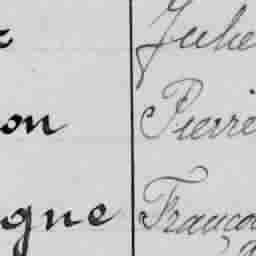 Julie
on Pierre
gne Franço